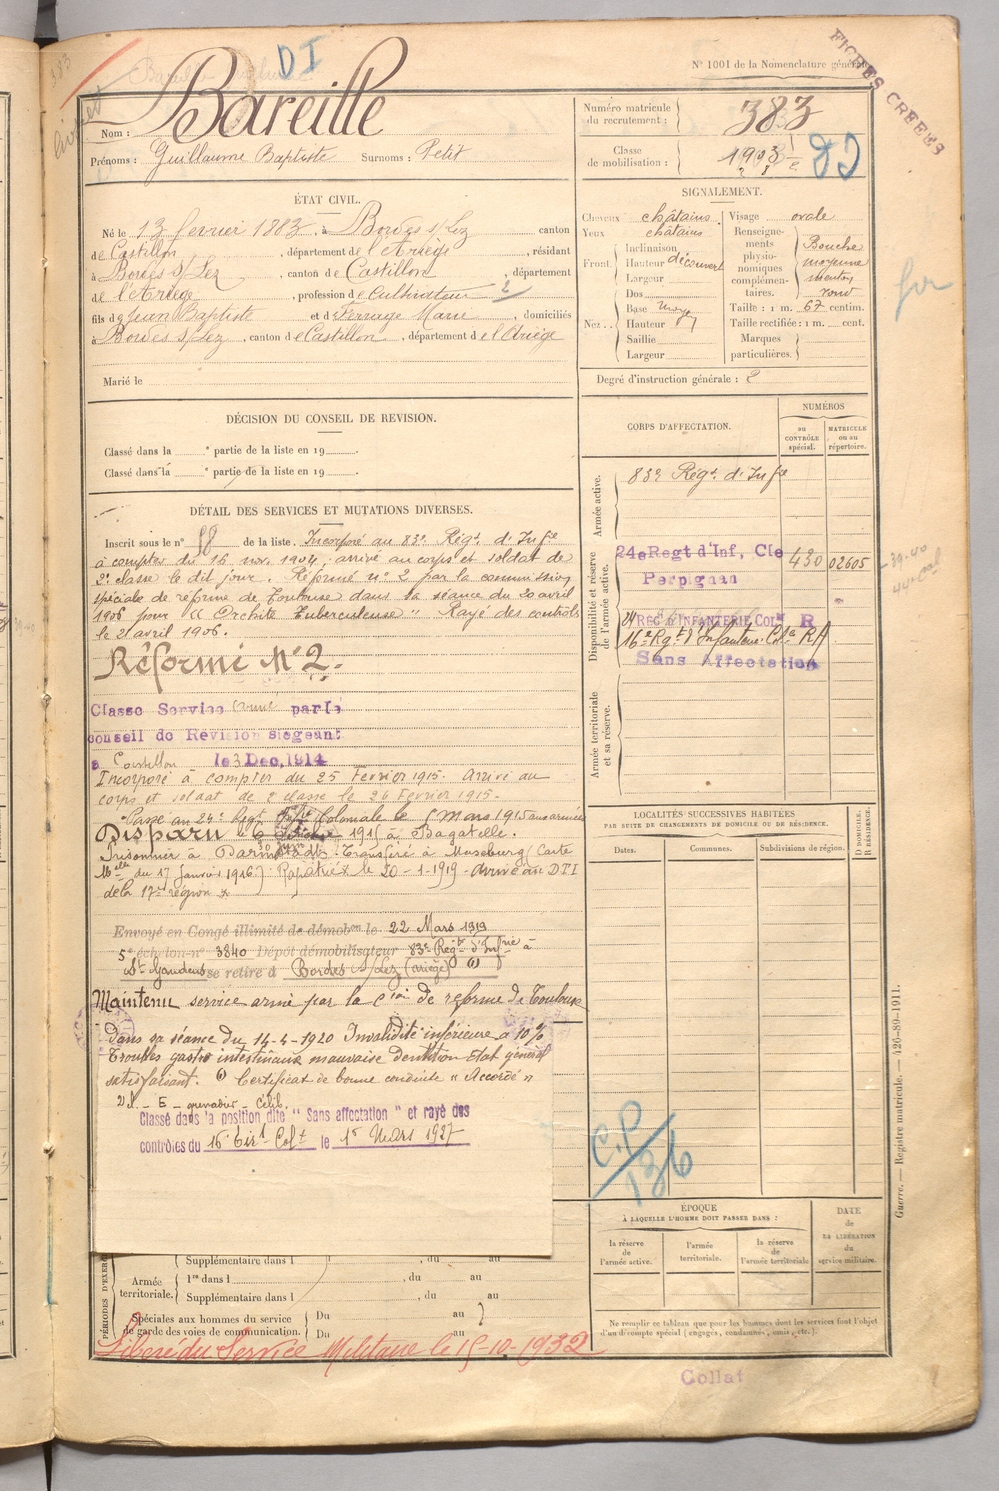 383
DI
N° 1001 de la Nomenclature générale
FICHES CRÉÉES
Nom : Bareille
Prénoms : Guillaume Baptiste Surnoms : Petit
Numéro matricule du recrutement : 383
Classe de mobilisation : 1903
ÉTAT CIVIL.
Né le 13 fevrier 1883, à Bordes s/Lez canton
de Castillon, département de l'Ariège, résidant
à Bordes s/Lez, canton de Castillon, département
de l'Ariège, profession de Cultivateur 2
fils de Jean Baptiste et de Marie, domiciliés
à Bordes s/Lez, canton de Castillon, département de l'Ariège
Marié le
SIGNALEMENT.
Cheveux châtains.
Yeux châtains
Front. Inclinaison
Hauteur découvert
Largeur
Nez. Dos
Base moy
Hauteur
Saillie
Largeur
Visage ovale
Renseignements physionomiques complémentaires. Bouche moyenne menton rond
Taille : 1 m. 67 centim.
Taille rectifiée : 1 m. cent.
Marques particulières.
Degré d'instruction générale : 2
DÉCISION DU CONSEIL DE REVISION.
Classé dans la e partie de la liste en 19
Classé dans la e partie de la liste en 19
DÉTAIL DES SERVICES ET MUTATIONS DIVERSES.
Inscrit sous le n° 58 de la liste. Incorporé au 83e Régt d'Infie
à compter du 16 nov. 1904, arrivé au corps et soldat de
2e classe le dit jour. Réformé n° 2 par la commission
spéciale de réforme de Toulouse dans sa séance du 20 avril
1906 pour " Orchite Tuberculeuse " Rayé des contrôles
le 21 avril 1906.
Réformé N° 2.
Classe Service armé par le
conseil de Révision siegeant
à Castillon le 3 Dec. 1914
Incorporé à compter du 25 Fevrier 1915. Arrivé au
corps et soldat de 2e classe le 26 Fevrier 1915.
Passé au 24e Régt Infie Coloniale le mars 1915
Disparu le 1915 à Bagatelle.
Prisonnier à Darmstadt. Transféré à (Carte
du 17 janvier 1916) Rapatrié le 20-1-1919 - Arrivé au DTI
de la 17e région
Envoyé en Congé illimité de démobon le 22 Mars 1919
5e échelon n° 3840 Dépôt démobilisateur 83e Regt d'Infrie à
St Gaudens se retire à Bordes s/Lez (ariège)
Maintenu service armé par la Cion de reforme de Toulouse
Dans sa séance du 14-4-1920 Invalidité inférieure à 10 %
Troubles gastro intestinaux mauvaise dentition Etat général
satisfaisant. Certificat de bonne conduite " Accordé "
E - grenadier - Célib.
Classé dans la position dite " Sans affectation " et rayé des
contrôles du 16e Tirrs Colx le 1er Mars 1927
CORPS D'AFFECTATION.
NUMÉROS
au CONTRÔLE spécial.
MATRICULE ou au répertoire.
Armée active.
83e Régt d'Infie
Disponibilité et réserve de l'armée active.
24e Regt d'Inf, Cle 430 02605
Perpignan
24 REG D'INFANTERIE COLe R
16e Rgt d'Infanterie Cole RA
Sans Affectation
Armée territoriale et sa réserve.
LOCALITÉS SUCCESSIVES HABITÉES
PAR SUITE DE CHANGEMENTS DE DOMICILE OU DE RÉSIDENCE.
Dates. Communes. Subdivisions de région. D DOMICILE. R RÉSIDENCE.
C.P/136
ÉPOQUE
À LAQUELLE L'HOMME DOIT PASSER DANS :
la réserve de l'armée active.
l'armée territoriale.
la réserve de l'armée territoriale
DATE de LA LIBÉRATION du service militaire.
Ne remplir ce tableau que pour les hommes dont les services font l'objet
d'un décompte spécial (engagés, condamnés, omis, etc.).
PÉRIODES D'EXER
Supplémentaire dans l , du au
Armée territoriale. 1re dans l , du au
Supplémentaire dans l , du au
Spéciales aux hommes du service de garde des voies de communication. Du au
Du au
Libéré du Service Militaire le 15-10-1932
Collat
Guerre. — Registre matricule. — 426-89-1911.